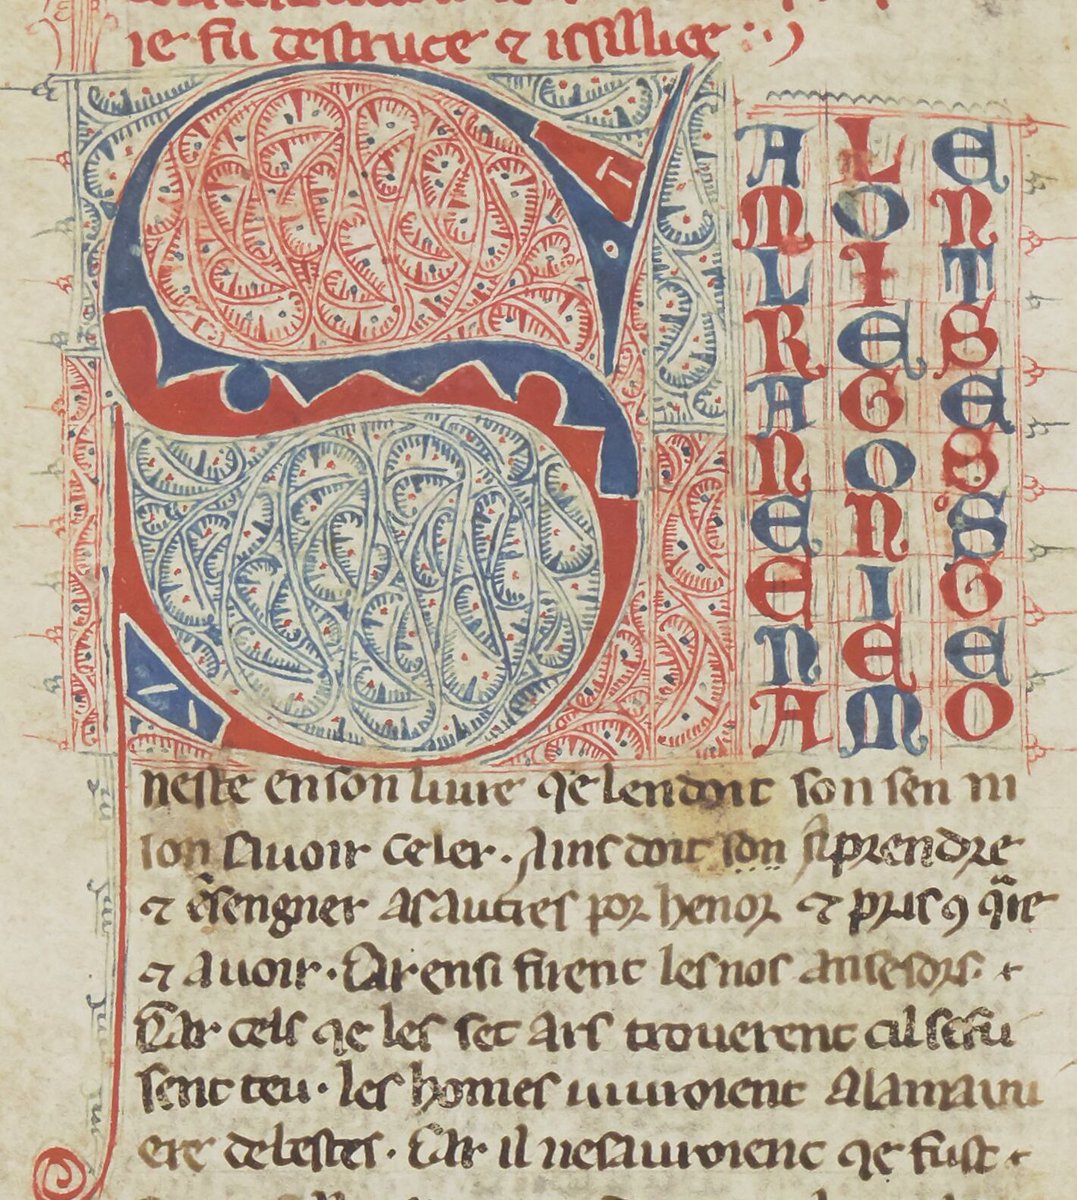 ie fu destruite & issilliee
S
A L E
M O N
L I T
R E S
A G E
N O S
E N S
E I G
N E E
A M O
neste en son liure qe len doit son sen ni
lon sauoir celer. Ains doit son aprendre
& ẽsengner as autres por henor & pris ꝯ q̃rre
& auoir. Car ensi firent les nos ansesors. &
Car cels qe les set ars trouerent cil se fu
sent teu. les homes uiuroient ala maini
ere de bestes. Car il ne sauroient qe fust &